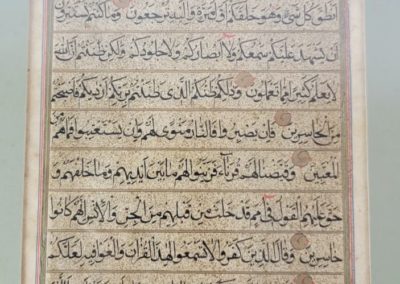 أنطق كل شيء وهو خلقكم أول مرة وإليه ترجعون وما كنتم تستترون
أن يشهد عليكم سمعكم ولا أبصاركم ولا جلودكم ولكن ظننتم أن الله
لا يعلم كثيرا مما تعملون وذلكم ظنكم الذي ظننتم بربكم أرديكم فأصبحتم
من الخاسرين فإن يصبروا فالنار مثوى لهم وإن يستعتبوا فما هم من
المعتبين وقيضنا لهم قرناء فزينوا لهم ما بين أيديهم وما خلفهم و
حق عليهم القول في أمم قد خلت من قبلهم من الجن والإنس إنهم كانوا
خاسرين وقال الذين كفروا لا تسمعوا لهذا القرآن والغوا فيه لعلكم